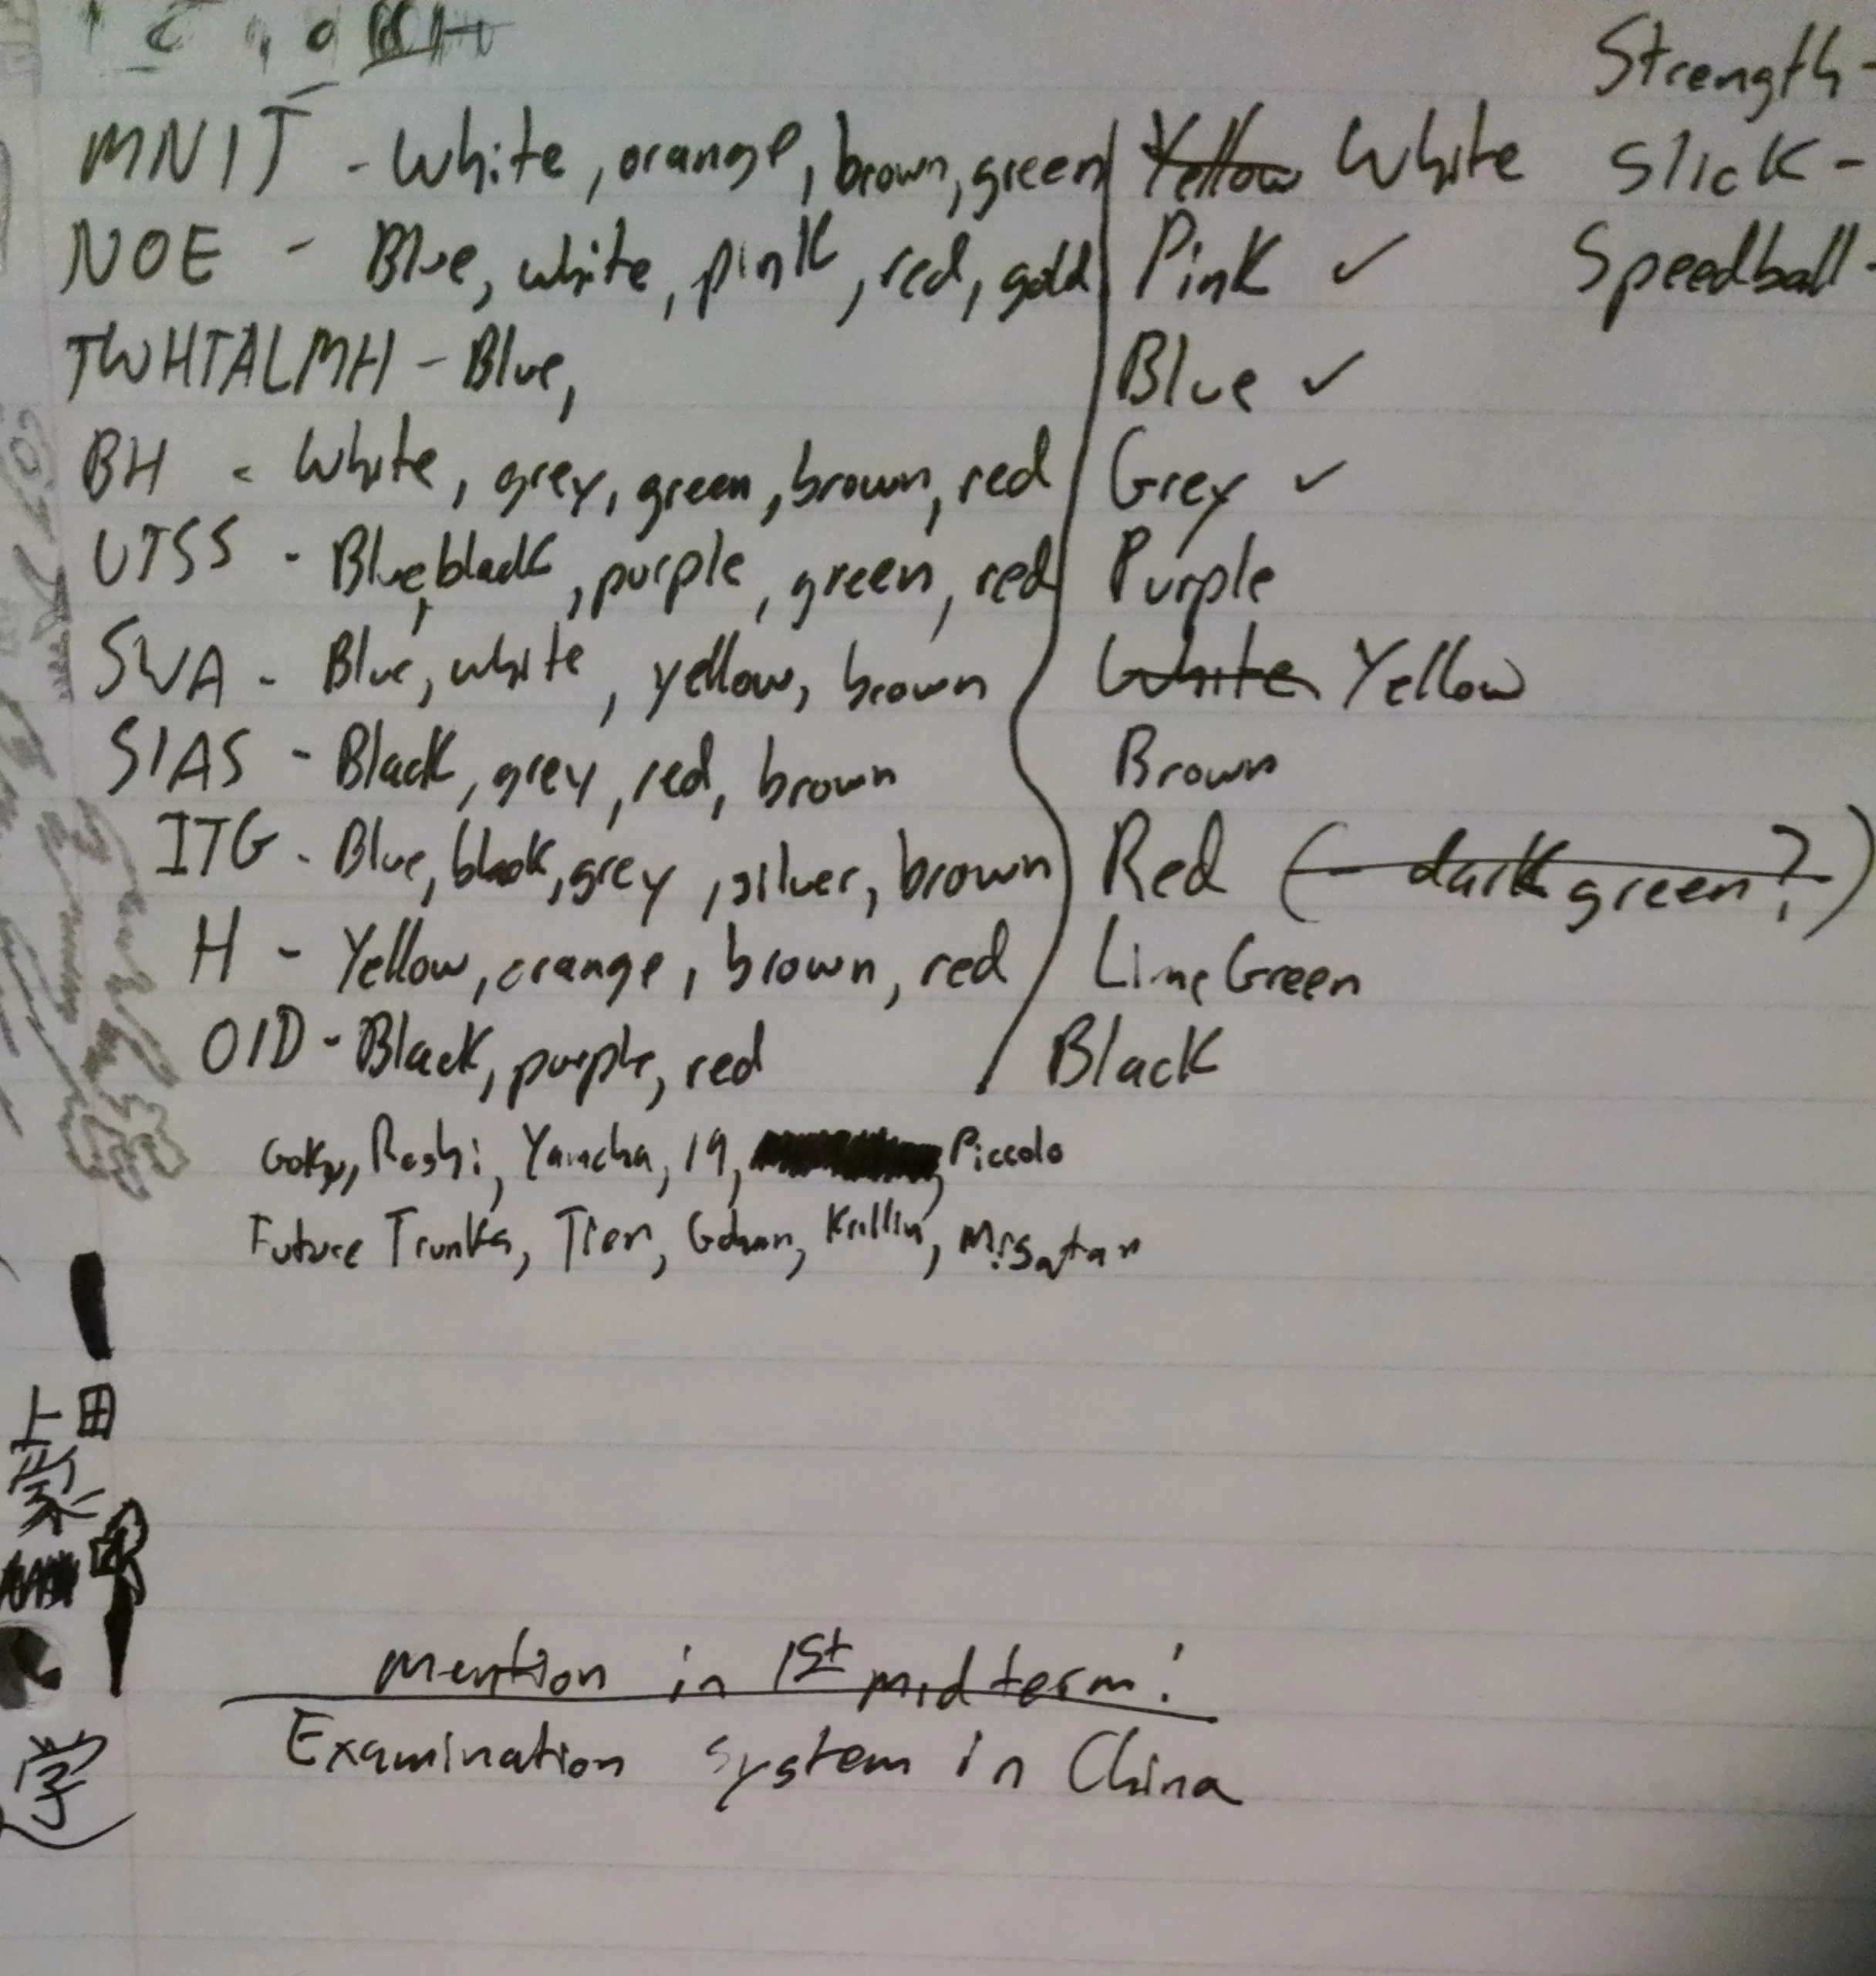 Strength-
MNIT - White, orange, brown, green Yellow White Slick-
NOE - Blue, white, pink, red, gold Pink ✓ Speedball-
TWHTALMH - Blue, Blue ✓
BH - White, grey, green, brown, red Grey ✓
UTSS - Blue, black, purple, green, red Purple
SWA - Blue, white, yellow, brown White Yellow
SIAS - Black, grey, red, brown Brown
ITG - Blue, black, grey, silver, brown Red (dark green?)
H - Yellow, orange, brown, red Lime Green
OID - Black, purple, red Black
Goku, Roshi, Yamcha, 19, Piccolo
Future Trunks, Tien, Gohan, Krillin, Mr. Satan
上田
家
mention in 1st midterm!
Examination system in China
学